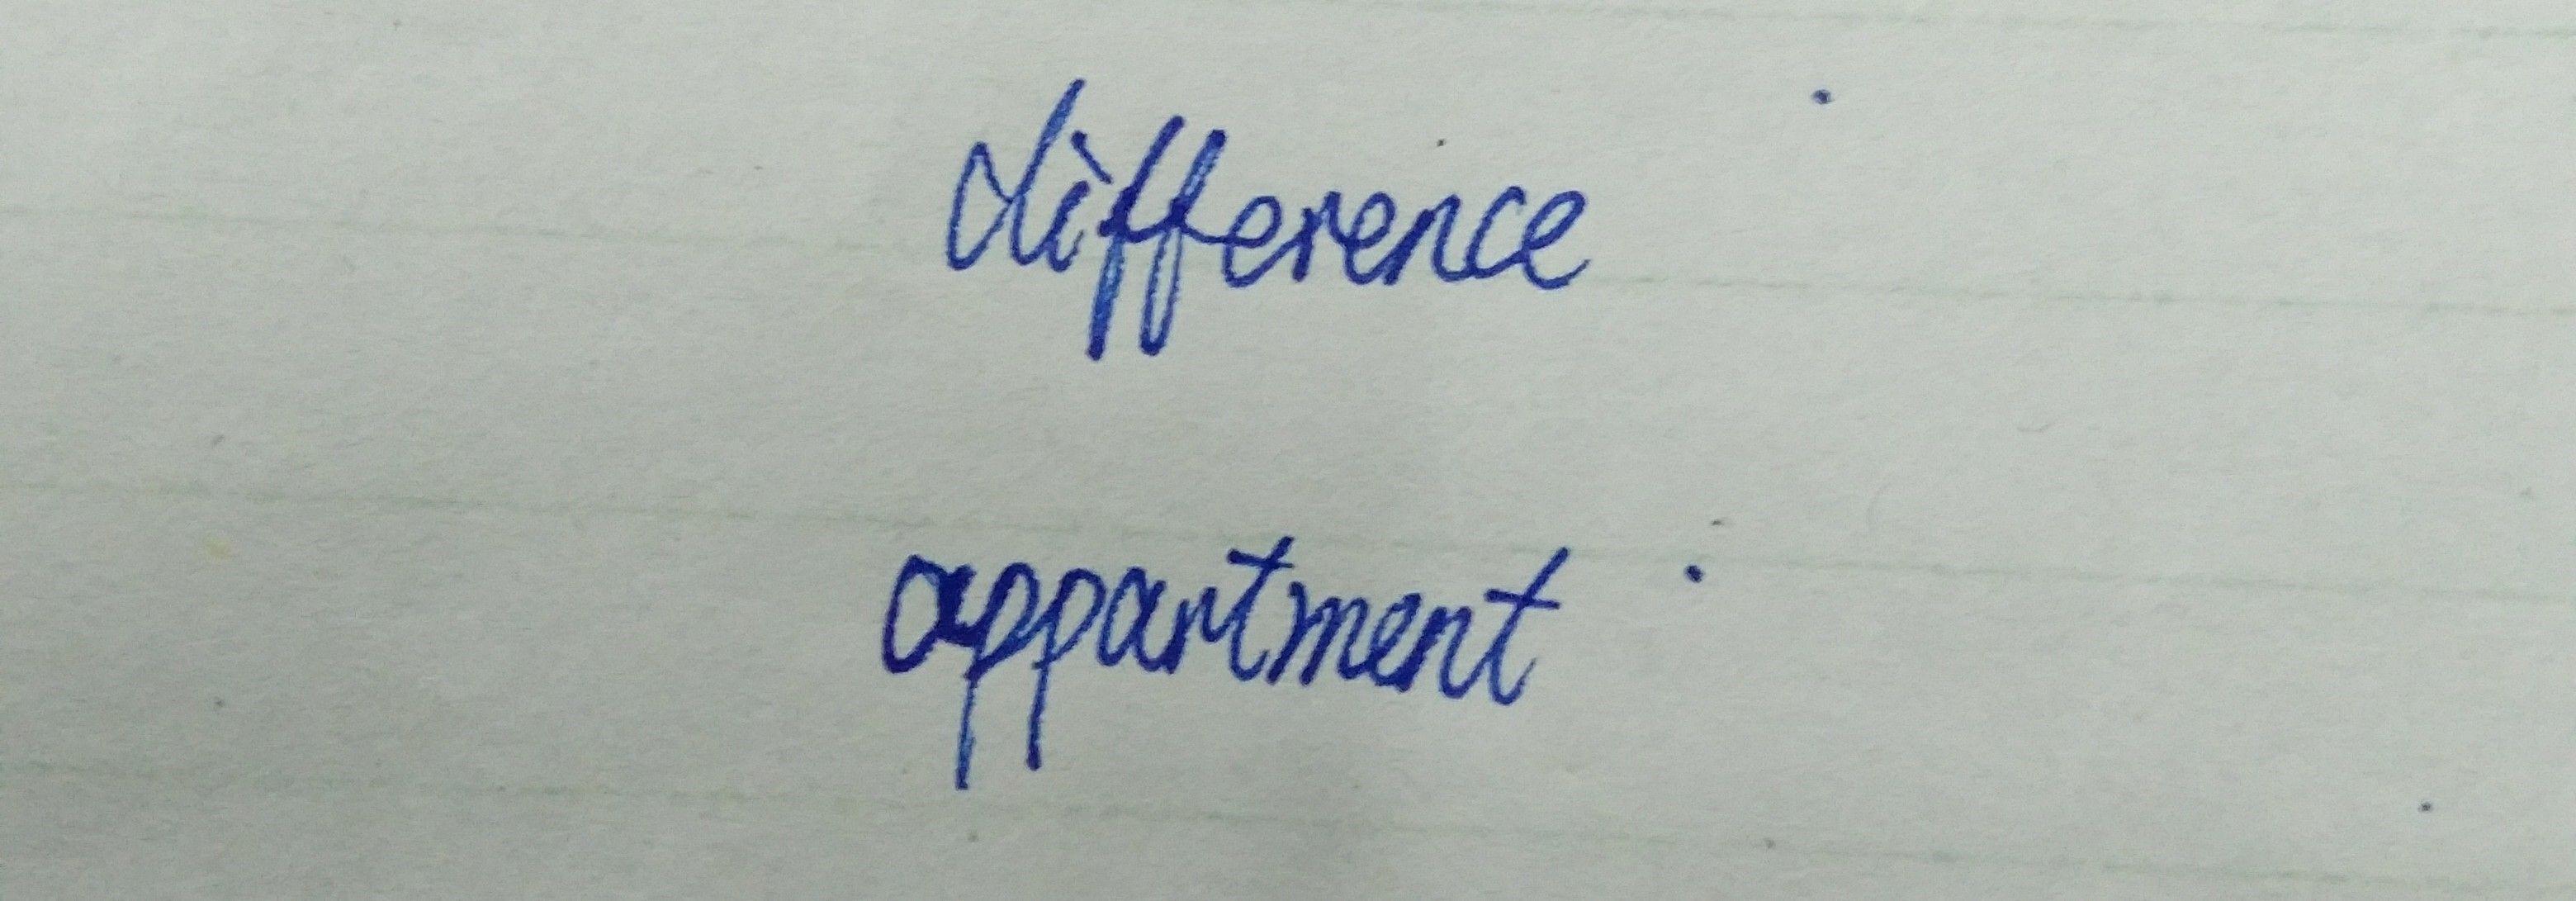 difference
appartment